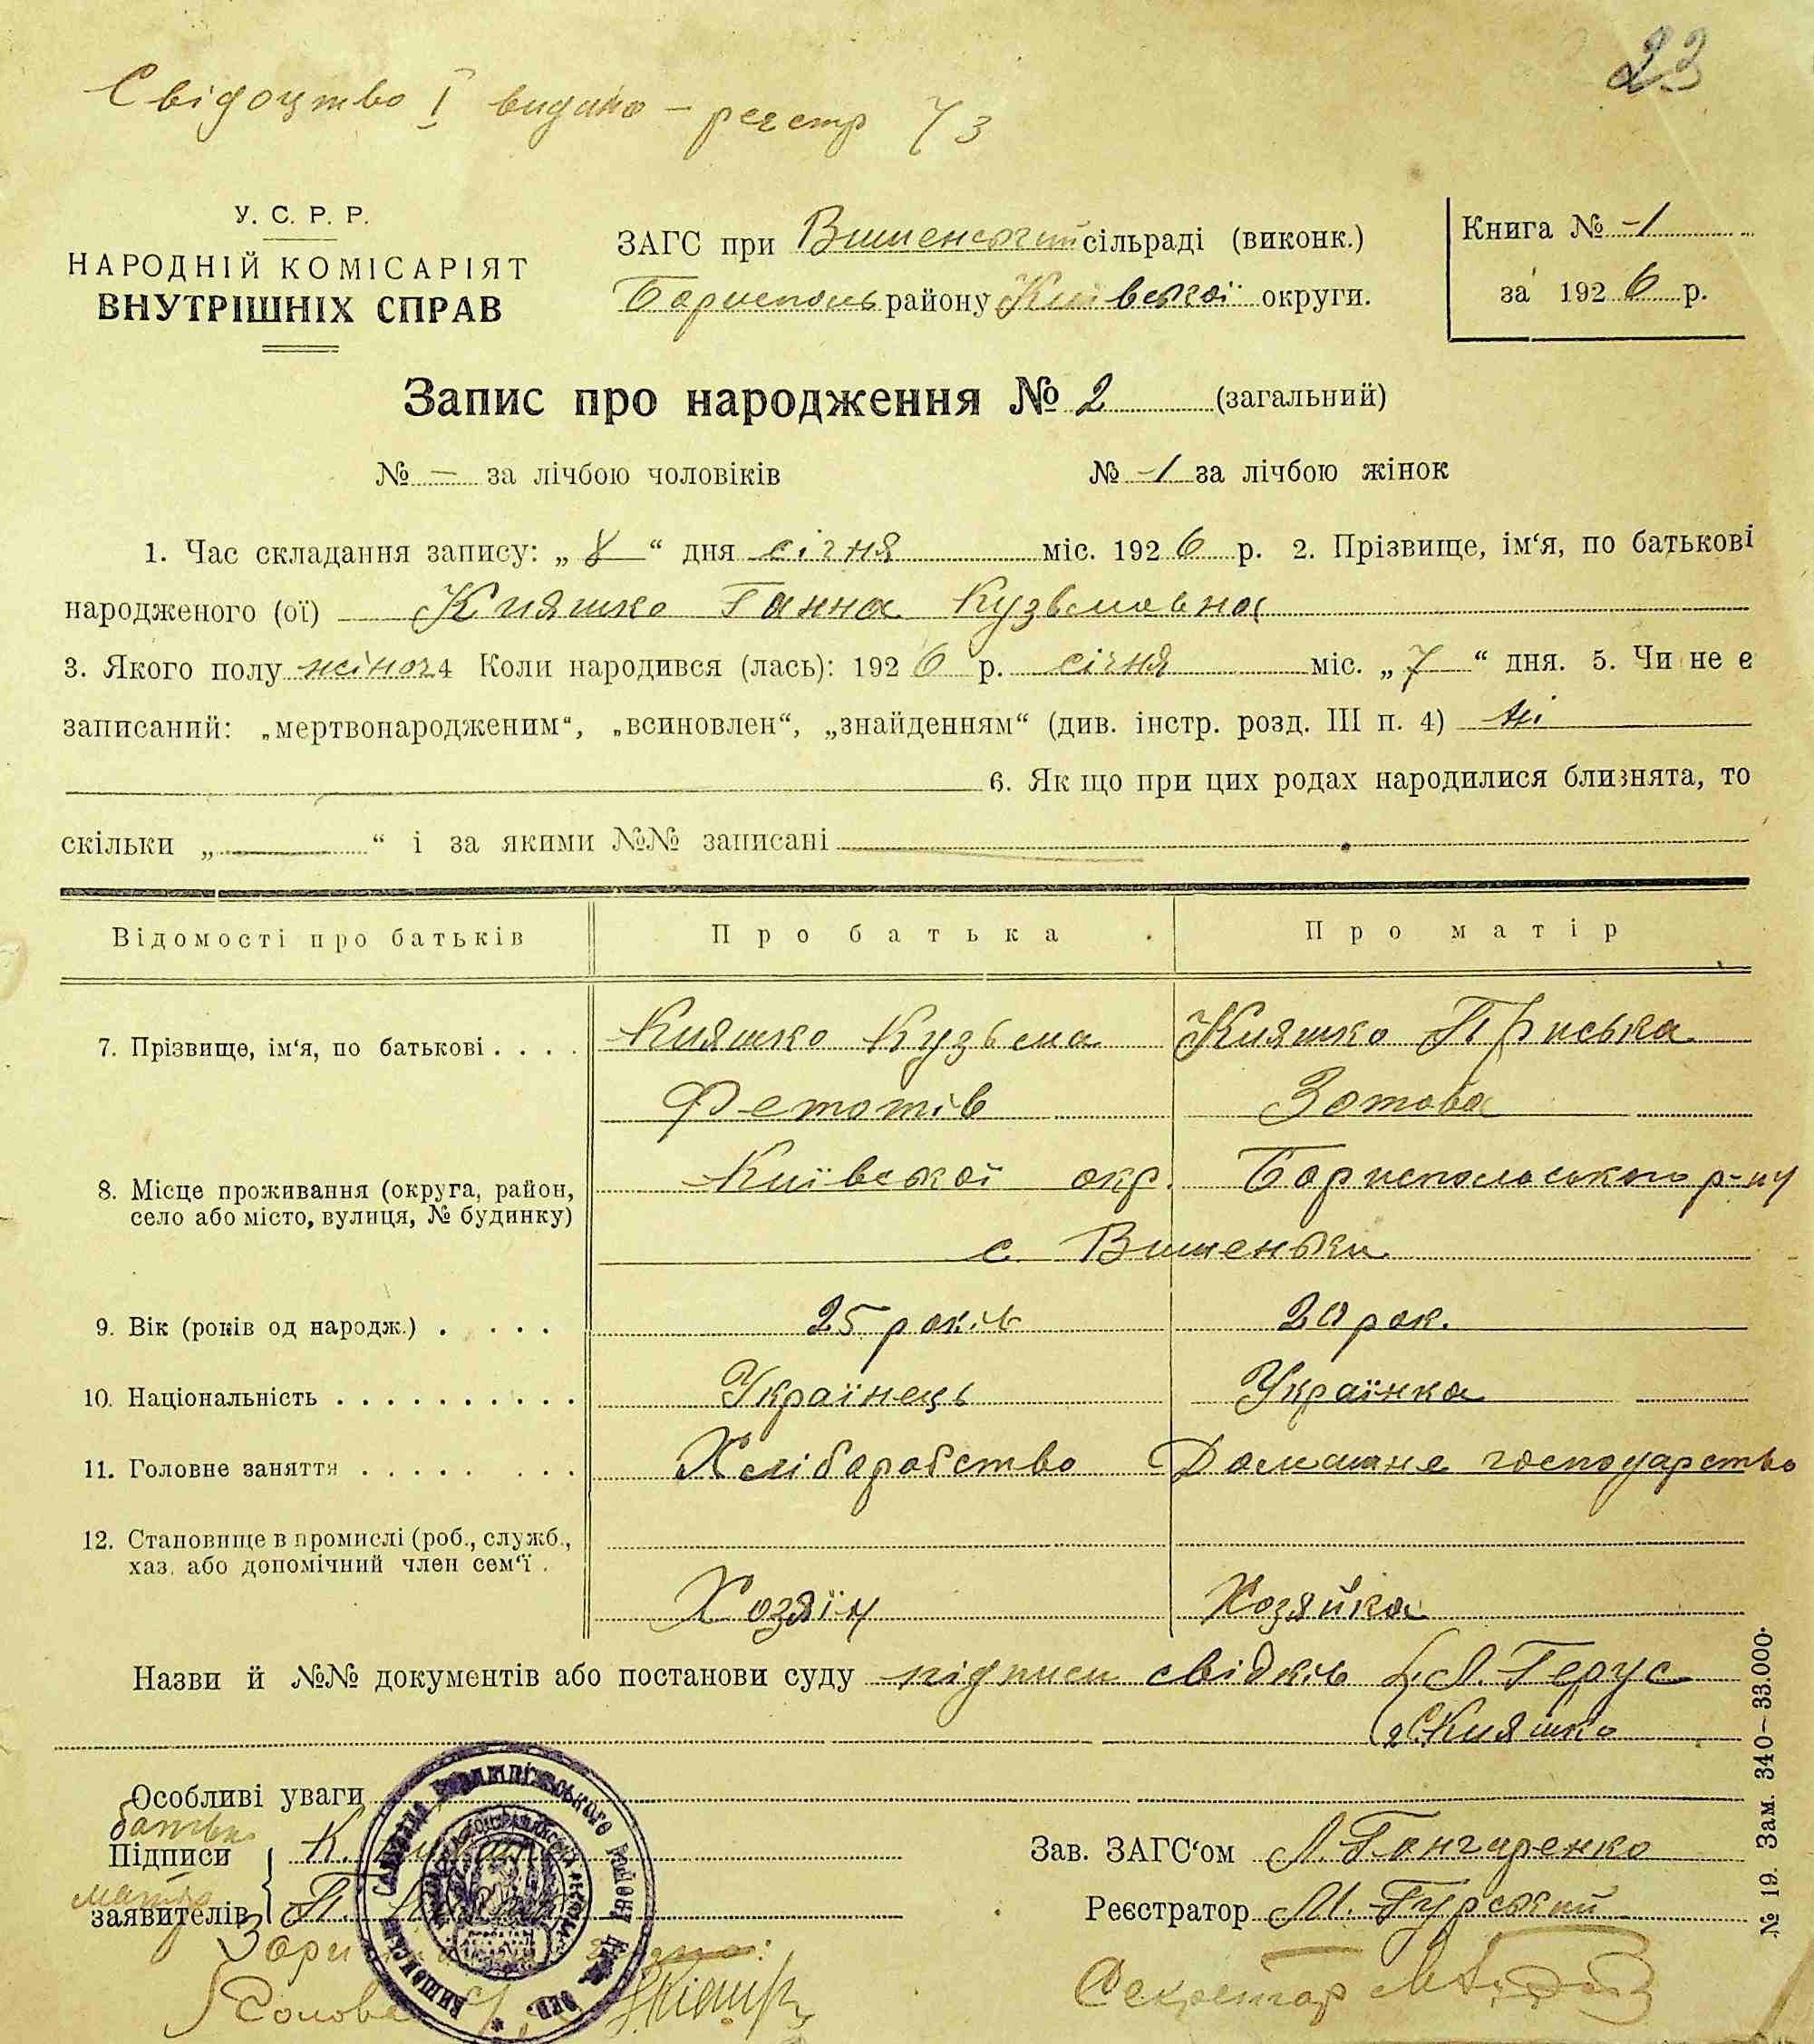 23
Свідоцтво І видано – реєстр 73
У. С. Р. Р.
НАРОДНІЙ КОМІСАРІЯТ
ВНУТРІШНІХ СПРАВ
ЗАГС при Вишенський сільраді (виконк.)
Бориспольрайону Київської округи.
Книга № 1
за 1926 р.
Запис про народження № 2 (загальний)
№ — за лічбою чоловіків № 1 за лічбою жінок
1. Час складання запису: „8“ дня січня міс. 1926 р. 2. Прізвище, ім‘я, по батькові
народженого (ої) Княшко Ганна Кузьмовна
3. Якого полу жіноч 4 Коли народився (лась): 1926 р. січня міс. „7“ дня. 5. Чи не є
записаний: „мертвонародженим“, „всиновлен“, „знайденням“ (див. інстр. розд. III п. 4) ні
6. Як що при цих родах народилися близнята, то
скільки „—“ і за якими №№ записані
Відомості про батьків Про батька Про матір
7. Прізвище, ім‘я, по батькові . . . . Княшко Кузьма Княшко Пріська
Фетотів Зотова
8. Місце проживання (округа, район, село або місто, вулиця, № будинку) Київської окр. Бориспольського р-ну
с. Вишеньки
9. Вік (років од народж.) . . . . . 25 років 20 рок.
10. Національність . . . . . . . . . . Українець Українка
11. Головне заняття . . . . . . . . Хліборобство Домашнє господарство
12. Становище в промислі (роб., служб.,
хаз. або допомічний член сем‘ї . Хозяїн Хозяйка
Назви й №№ документів або постанови суду підписи свідків 1. Л. Герус
2 С. Княшко
Особливі уваги
батька
Підписи К.
матір
заявителів П.
Зав. ЗАГС‘ом Л. Гончаренко
Реєстратор М. Гурський
Секретар
№ 19. Зам. 340—33.000.